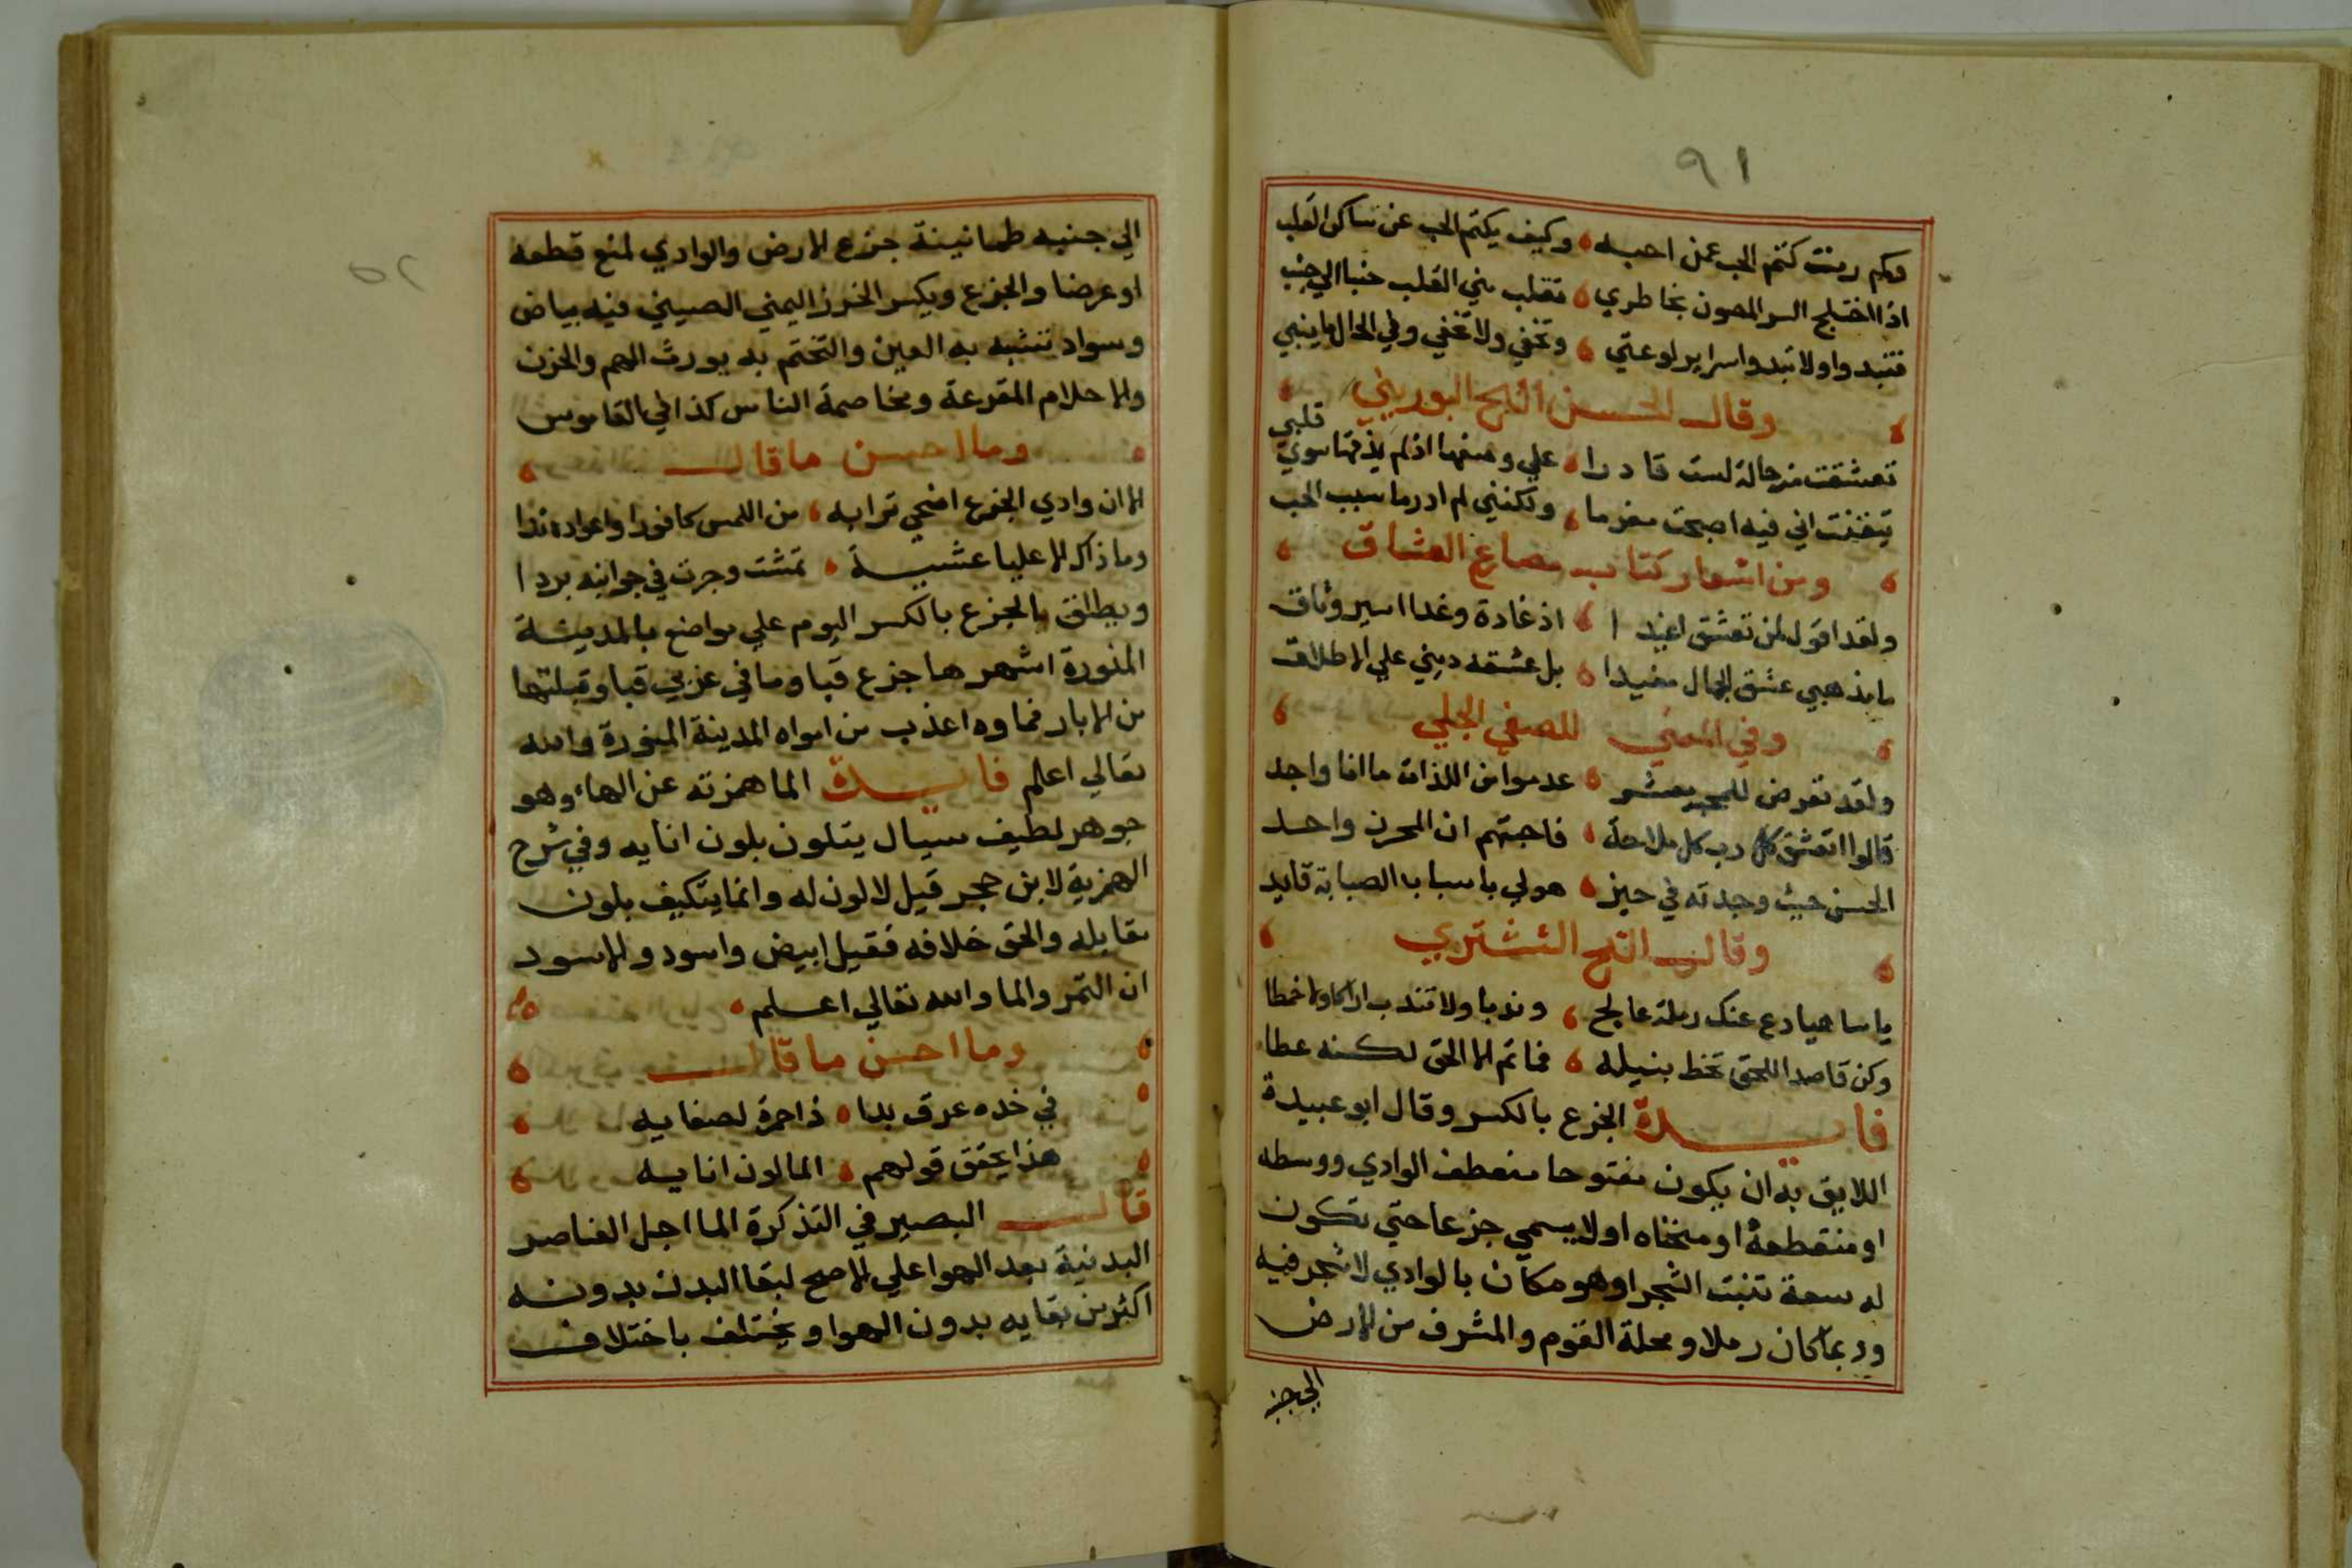 ٩١
وكم رمت كتم الحب عمن احبه وكيف يكتم الحب عن ساكن القلب
اذا اختلج السر المصون بخاطري تقلب مني القلب جنبا الي جنب
فتبدوا ولا تبدوا سراير لوعتي وتخفي ولا تخفي وفي الحال ما ينبي
وقال الحسن البوريني
تعشقت من حالة لست قادرا علي وصفها اذ لم يذقها سوي قلبي
تيقنت اني فيه اصبحت مغرما ولكنني لم ادر ما سبب الحب
ومن اشعار كتاب مصارع العشاق
ولقد اقول لمن تعشق اغيدا اذ غادة وغدا اسير وثاق
ما مذهبي عشق الجمال مقيدا بل عشقه ديني علي الاطلاق
وفي المعني للصفي الحلي
ولقد تعرض للمحبة معشر عدموا من اللذات ما انا واجد
قالوا اتعشق كل رب كل ملاحة فاجبتهم ان المحرك واحد
الحسن حيث وجدته في حيز هو لي باسباب الصبابة قايد
وقال الششتري
يا ساهيا دع عنك رملة عالج وندبا ولا تندب اراكا ولا خمطا
وكن قاصدا للحق تحظ بنيله فما ثم الا الحق لكنه عطا
فايدة الجزع بالكسر وقال ابو عبيدة
اللايق به ان يكون مفتوحا منعطف الوادي ووسطه
او منقطعه او منحناه او لا يسمي جزعا حتي تكون
له سعة تنبت الشجر او هو مكان بالوادي لا شجر فيه
وربما كان رملا ومحلة القوم والمشرف من الارض
الي جنبه
٥٢
الي جنبه طمانينة جزع الارض والوادي لمنع قطعه
او عرضا والجزع ويكسر الخرز اليمني الصيني فيه بياض
وسواد تشبه به العين والتختم به يورث الهم والحزن
والاحلام المفزعة ومخاصمة الناس كذا في القاموس
وما احسن ما قال
الا ان وادي الجزع اضحي ترابه من اللمس كافورا واعواده ندا
وما ذاك الا عليا عشية تمشت وجرت في جوانبه بردا
ويطلق بالجزع بالكسر اليوم علي مواضع بالمدينة
المنورة اشهرها جزع قبا وما في غربي قبا وقبلتها
من الابار فماوه اعذب من امواه المدينة المنورة والله
تعالي اعلم فايدة الما همزته عن الهاء وهو
جوهر لطيف سيال يتلون بلون انايه وفي شرح
الهمزية لابن حجر قيل لا لون له وانما يتكيف بلون
مقابله والحق خلافه فقيل ابيض واسود والاسود
ان التمر والما والله تعالي اعلم
وما احسن ما قال
في خده عرق بدا ذا حمرة لصفايه
هذا يحقق قولهم الما لون انايه
قال البصير في التذكرة الما اجل العناصر
البدنية بعد الهوا علي الاصح لبقا البدن بدونه
اكثر من بقايه بدون الهوا ويختلف باختلاف